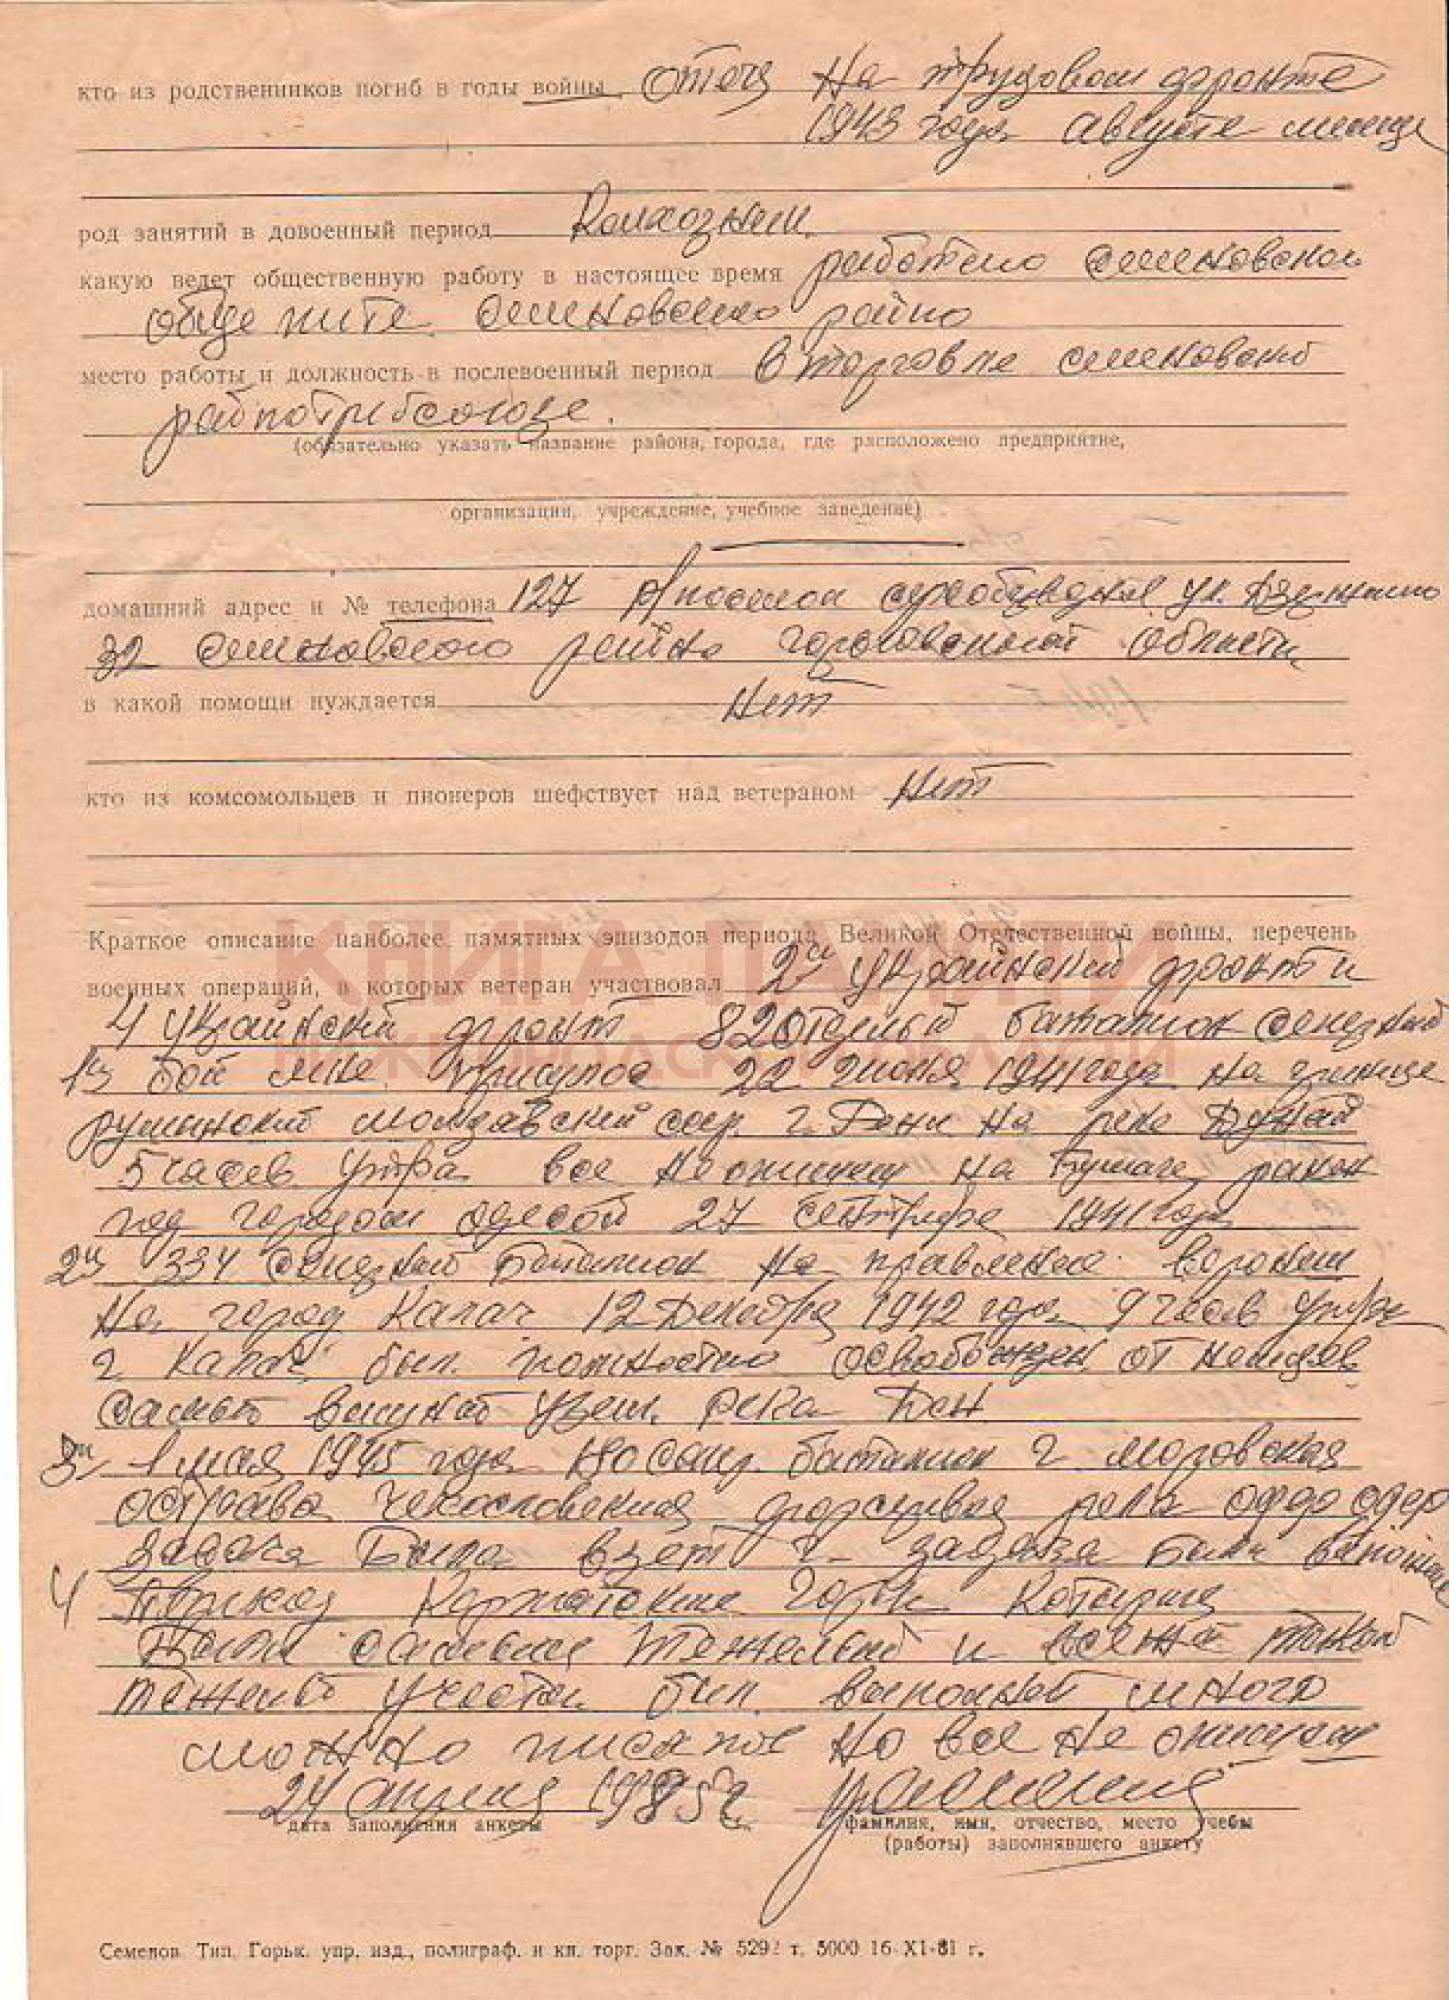 кто из родственников погиб в годы войны отец На трудовом фронте
1943 года августе месяце
род занятий в довоенный период Колхозник.
какую ведет общественную работу в настоящее время работаю семеновском
семеновского райно
место работы и должность в послевоенный период в торговле семеновско
райпотрибсоюзе.
(обязательно указать название района, города, где расположено предприятие,
организации, учреждение, учебное заведение)
домашний адрес и № телефона 127 р/поселок сухобезводное ул. Дзержинского
32 семеновского района горьковской области
в какой помощи нуждается Нет
кто из комсомольцев и пионеров шефствует над ветераном Нет
КНИГА ПАМЯТИ
НИЖЕГОРОДСКОЙ ОБЛАСТИ
Краткое описание наиболее памятных эпизодов периода Великой Отечественной войны, перечень
военных операций, в которых ветеран участвовал 2й украинский фронт и
4 украинский фронт 82 отделный баталион
1й бой мне 22 июня 1941 года на границе
румынский молдавский сср. г. Рени на реке Дунай
5 часов утра все не опишеш на бумаге, ранен
под городом одесой 27 сентября 1941 года
2й 334 баталион на правление воронеш
На город Калач 12 Декабря 1942 года 9 часов утра
г Калач был полностю освобожден от немцев
река Дон
3й 1 мая 1945 года баталион г. моровская
острава чехословения река одер
задача была взят г. задача была
4 Перевал Карпатские горы
были самые тежелый и
тежелый участок был выполнен много
можно писать но все не опишеш
24 апреля 1985 г.
дата заполнения анкеты
фамилия, имя, отчество, место учебы
(работы) заполнявшего анкету
Семенов Тип. Горьк. упр. изд., полиграф. и кн. торг. Зак. № 5292 т. 5000 16-XI-81 г.